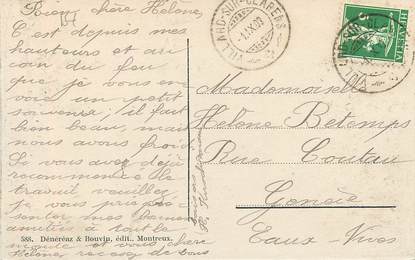 Bien chère Hélène,
C'est depuis mes
hauteurs et au
coin du feu
que je vous en-
voie un petit
souvenir; il fait
bien beau, mais
nous avons froid.
Si vous avez déjà
recommencé le
travail veuillez
je vous prie pré-
senter mes bonnes
amitiés à tout le
monde et vous chère
Hélène, recevez de bons
VILLARD-SUR-CLARENS
HELVETIA
Mademoiselle
Hélène Betemps
Rue Coutau
Genève
Eaux-Vives
588. Dénéréaz & Bouvin, édit., Montreux.